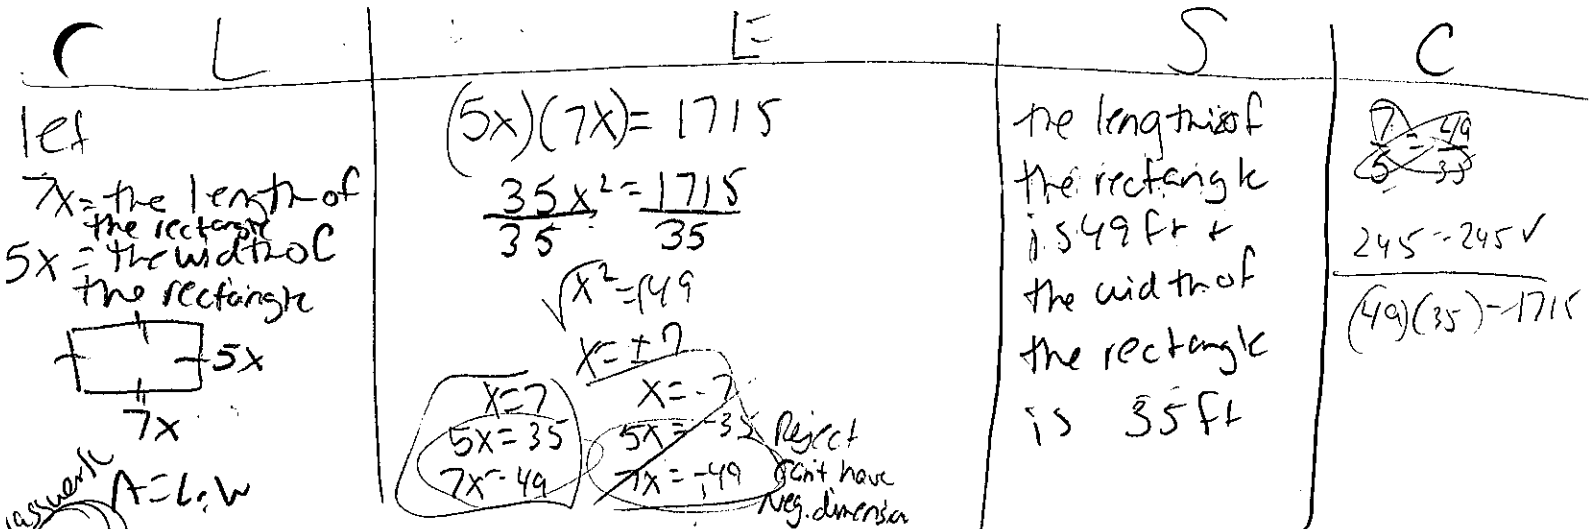 L
E
S
C
let
7x = the length of
the rectangle
5x = the width of
the rectangle
5x
7x
A = L · W
(5x)(7x) = 1715
35x² = 1715
35 35
√x² = √49
x = ±7
x = 7
5x = 35
7x = 49
x = -7
5x = -35
7x = -49
Reject
can't have
Neg. dimension
the length of
the rectangle
is 49 ft +
the width of
the rectangle
is 35 ft
7/5 = 49/35
245 = 245 ✓
(49)(35) = 1715